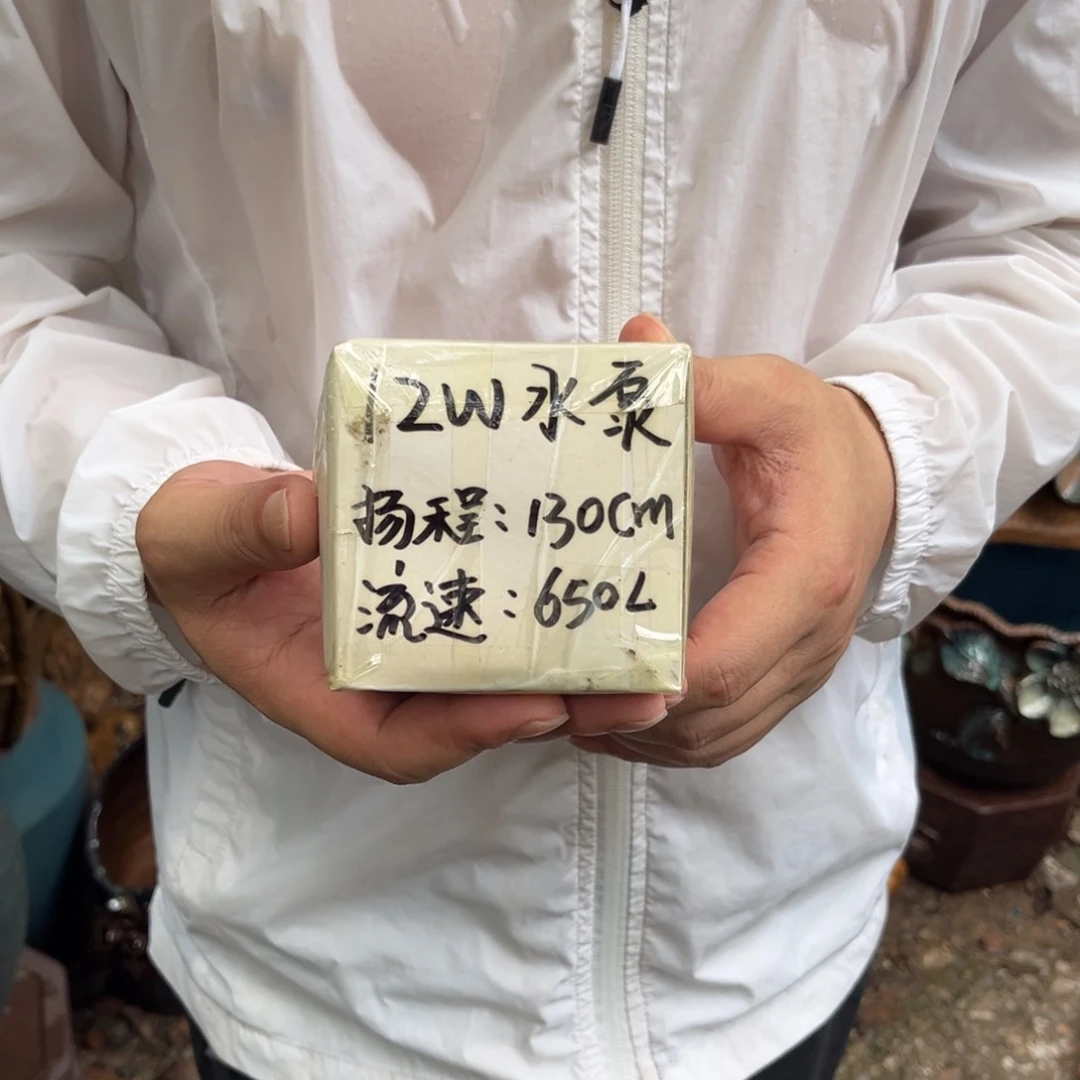 12W水泵
扬程:130Cm
流速:650L